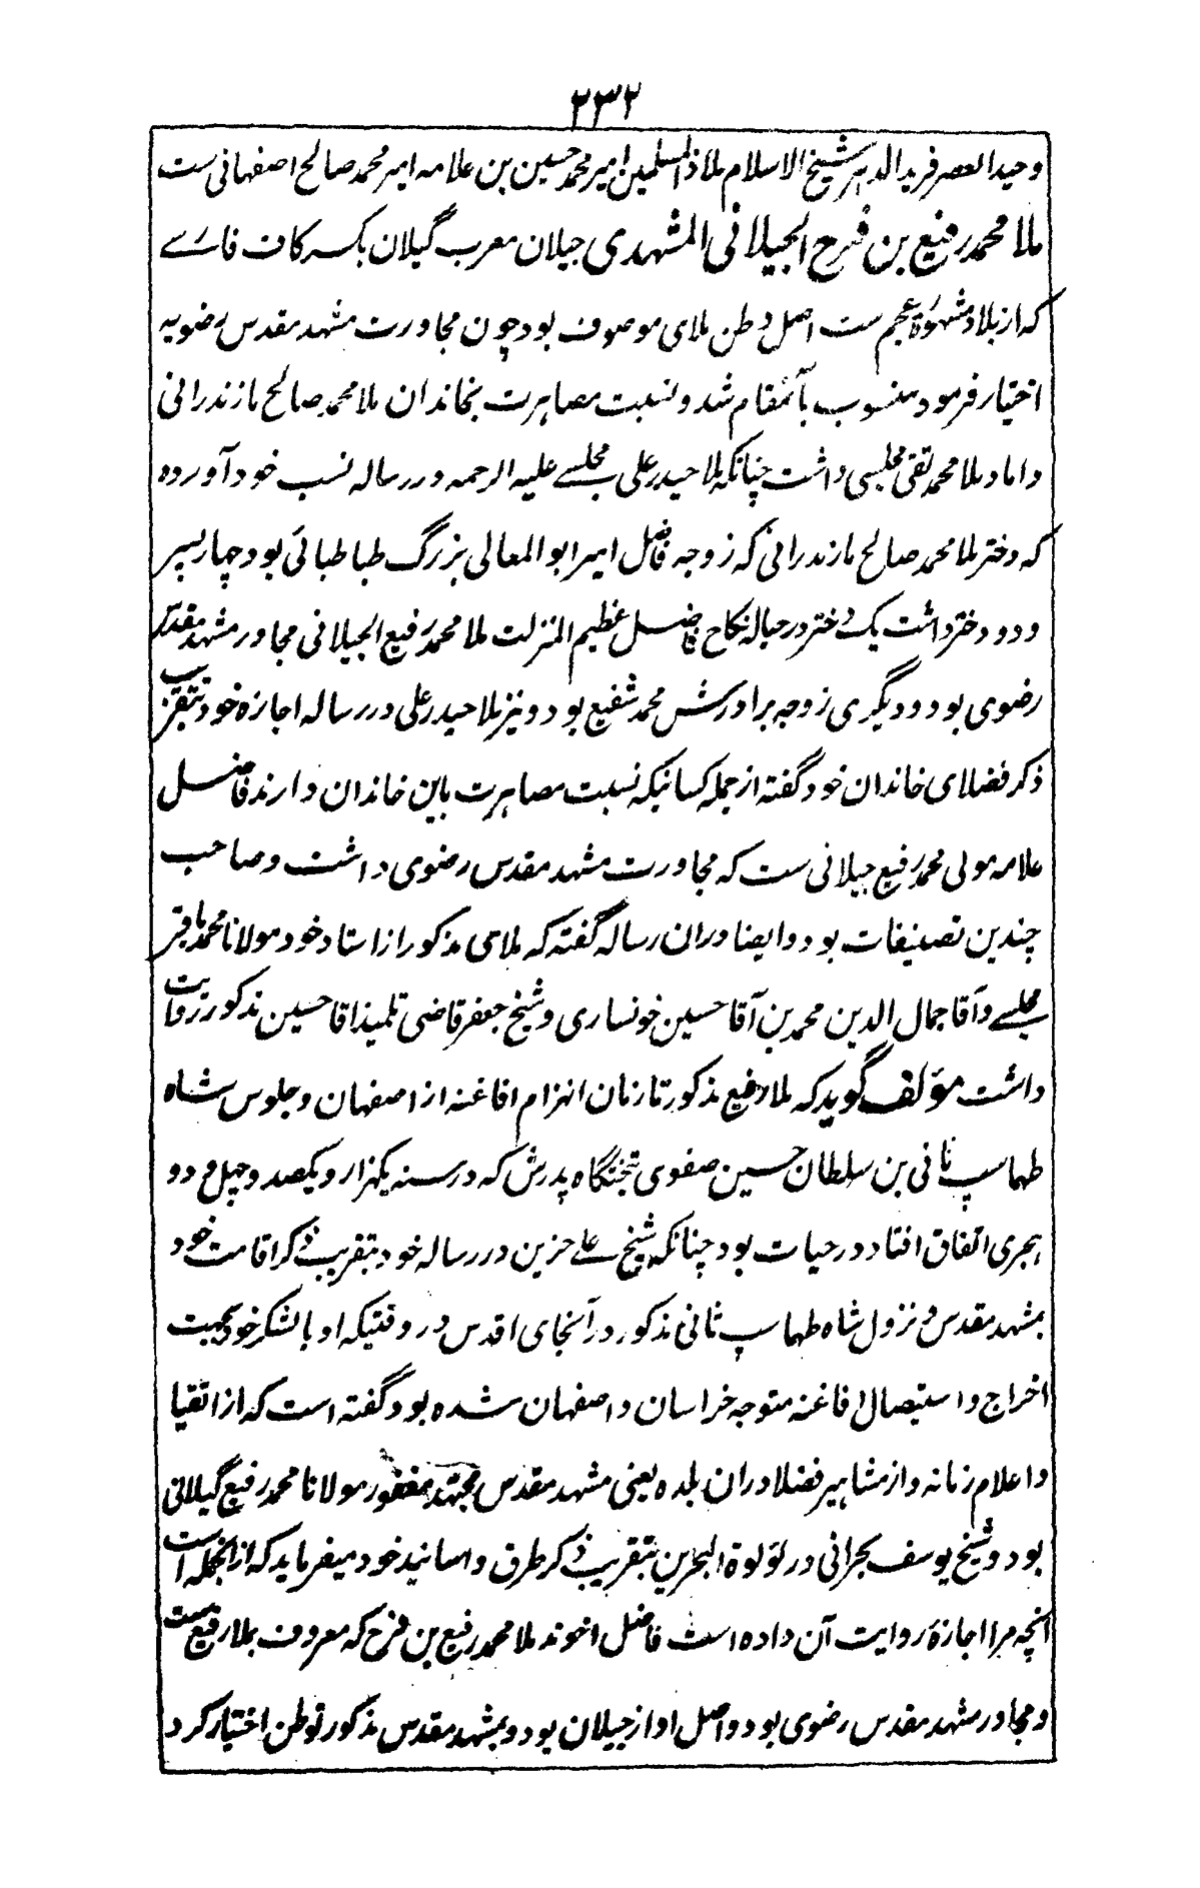 ۲۳۲
وحید العصر فرید الدهر شیخ الاسلام ملاذ المسلمین امیر محمد حسین بن علامه امیر محمد صالح اصفهانی ست
ملا محمد رفیع بن فرح الجیلانی المشهدی جیلان معرب گیلان بکسر کاف فارسے
که از بلاد مشهورۀ عجم ست اصل وطن ملای موصوف بود چون مجاورت مشهد مقدس رضویه
اختیار فرمود منسوب بآنمقام شد و نسبت مصاهرت بخاندان ملا محمد صالح مازندرانی
داماد ملا محمد تقی مجلسی داشت چنانکه ملا حیدر علی مجلسے علیه الرحمه در رساله نسب خود آورده
که دختر ملا محمد صالح مازندرانی که زوجه فاضل امیر ابو المعالی بزرگ طباطبائی بود چهار پسر
و دو دختر داشت یک دختر در حباله نکاح فاضل عظیم المنزلت ملا محمد رفیع الجیلانی مجاور مشهد مقدس
رضوی بود و دیگری زوجه برادرش محمد شفیع بود و نیز ملا حیدر علی در رساله اجازه خود بتقریب
ذکر فضلای خاندان خود گفته از جمله کسانیکه نسبت مصاهرت باین خاندان دارند فاضل
علامه مولی محمد رفیع جیلانی ست که مجاورت مشهد مقدس رضوی داشت و صاحب
چندین تصنیفات بود و ایضا دران رساله گفته که ملای مذکور از استاد خود مولانا محمد باقر
مجلسے و آقا جمال الدین محمد بن آقا حسین خونساری و شیخ جعفر قاضی تلمیذ اقا حسین مذکور روایت
داشت مؤلف گوید که ملا رفیع مذکور تا زمان انهزام افاغنه از اصفهان و جلوس شاه
طهماسپ ثانی بن سلطان حسین صفوی بتختگاه پدرش که در سنه یکهزار و یکصد و چهل و دو
هجری اتفاق افتاد در حیات بود چنانکه شیخ علے حزین در رساله خود بتقریب ذکر اقامت خود
بمشهد مقدس و نزول شاه طهماسپ ثانی مذکور در آنجای اقدس در وقتیکه او با لشکر خود بجهت
اخراج و استیصال افاغنه متوجه خراسان و اصفهان شده بود گفته است که از اتقیا
و اعلام زمانه و از مشاهیر فضلا دران بلده یعنی مشهد مقدس مجتهد مغفور مولانا محمد رفیع گیلانی
بود و شیخ یوسف بحرانی در لؤلوة البحرین بتقریب ذکر طرق و اسانید خود میفرماید که از انجمله است
آنچه مرا اجازۀ روایت آن داده است فاضل اخوند ملا محمد رفیع بن فرح که معروف بملا رفیع ست
و مجاور مشهد مقدس رضوی بود و اصل او از جیلان بود و بمشهد مقدس مذکور توطن اختیار کرد